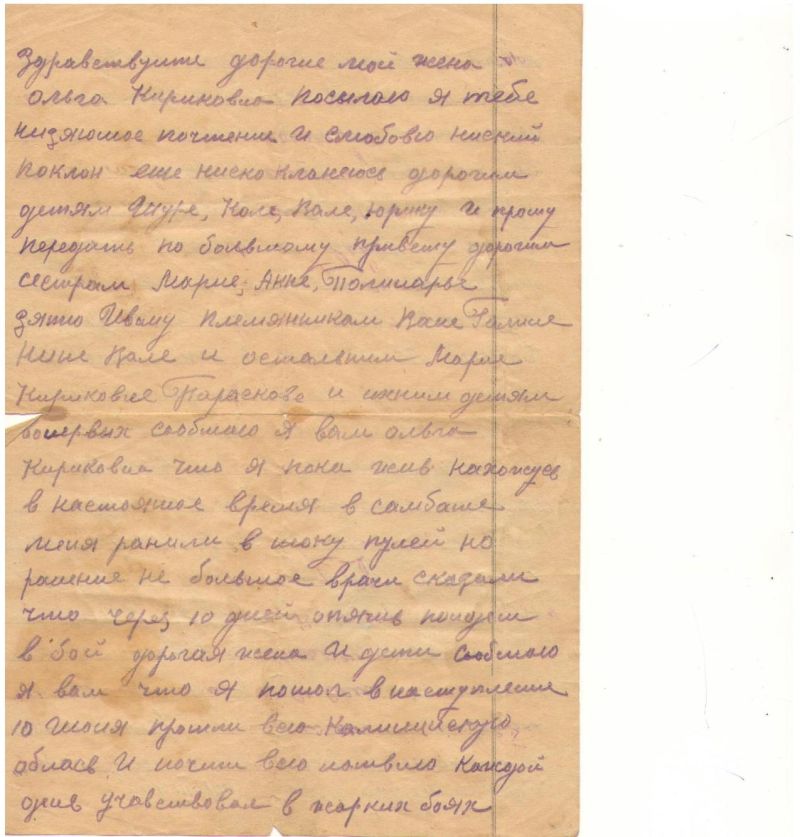 Здравствуите дорогие мой жена
ольга Кириковна посылаю я тебе
низяюшое почтение И слюбовю ниский
поклон еше ниско кланеюсь дорогим
детям Шуре, Коле, Вале, юрику И прошу
передать по большому привету дорогим
сестрам Марие, Анне,
зятю Ивану племянникам Ване Галине
Нине Вале и осталыним Марие
Кириковне Парасковё и ихним детям
вопервых сообшаю Я вам ольга
Кириковна что я пока жив нахожусь
в настояшое время в самбате
меня ранили в шоку пулей но
ранение не большое врачи сказали
что через 10 дней опять поидем
в бой дорогая жена И дети сообшаю
я вам что я пошол в наступление
10 Июня прошли всю Калинискую
обласв И почти всю латвию Каждой
день учавствовал в жарких боях